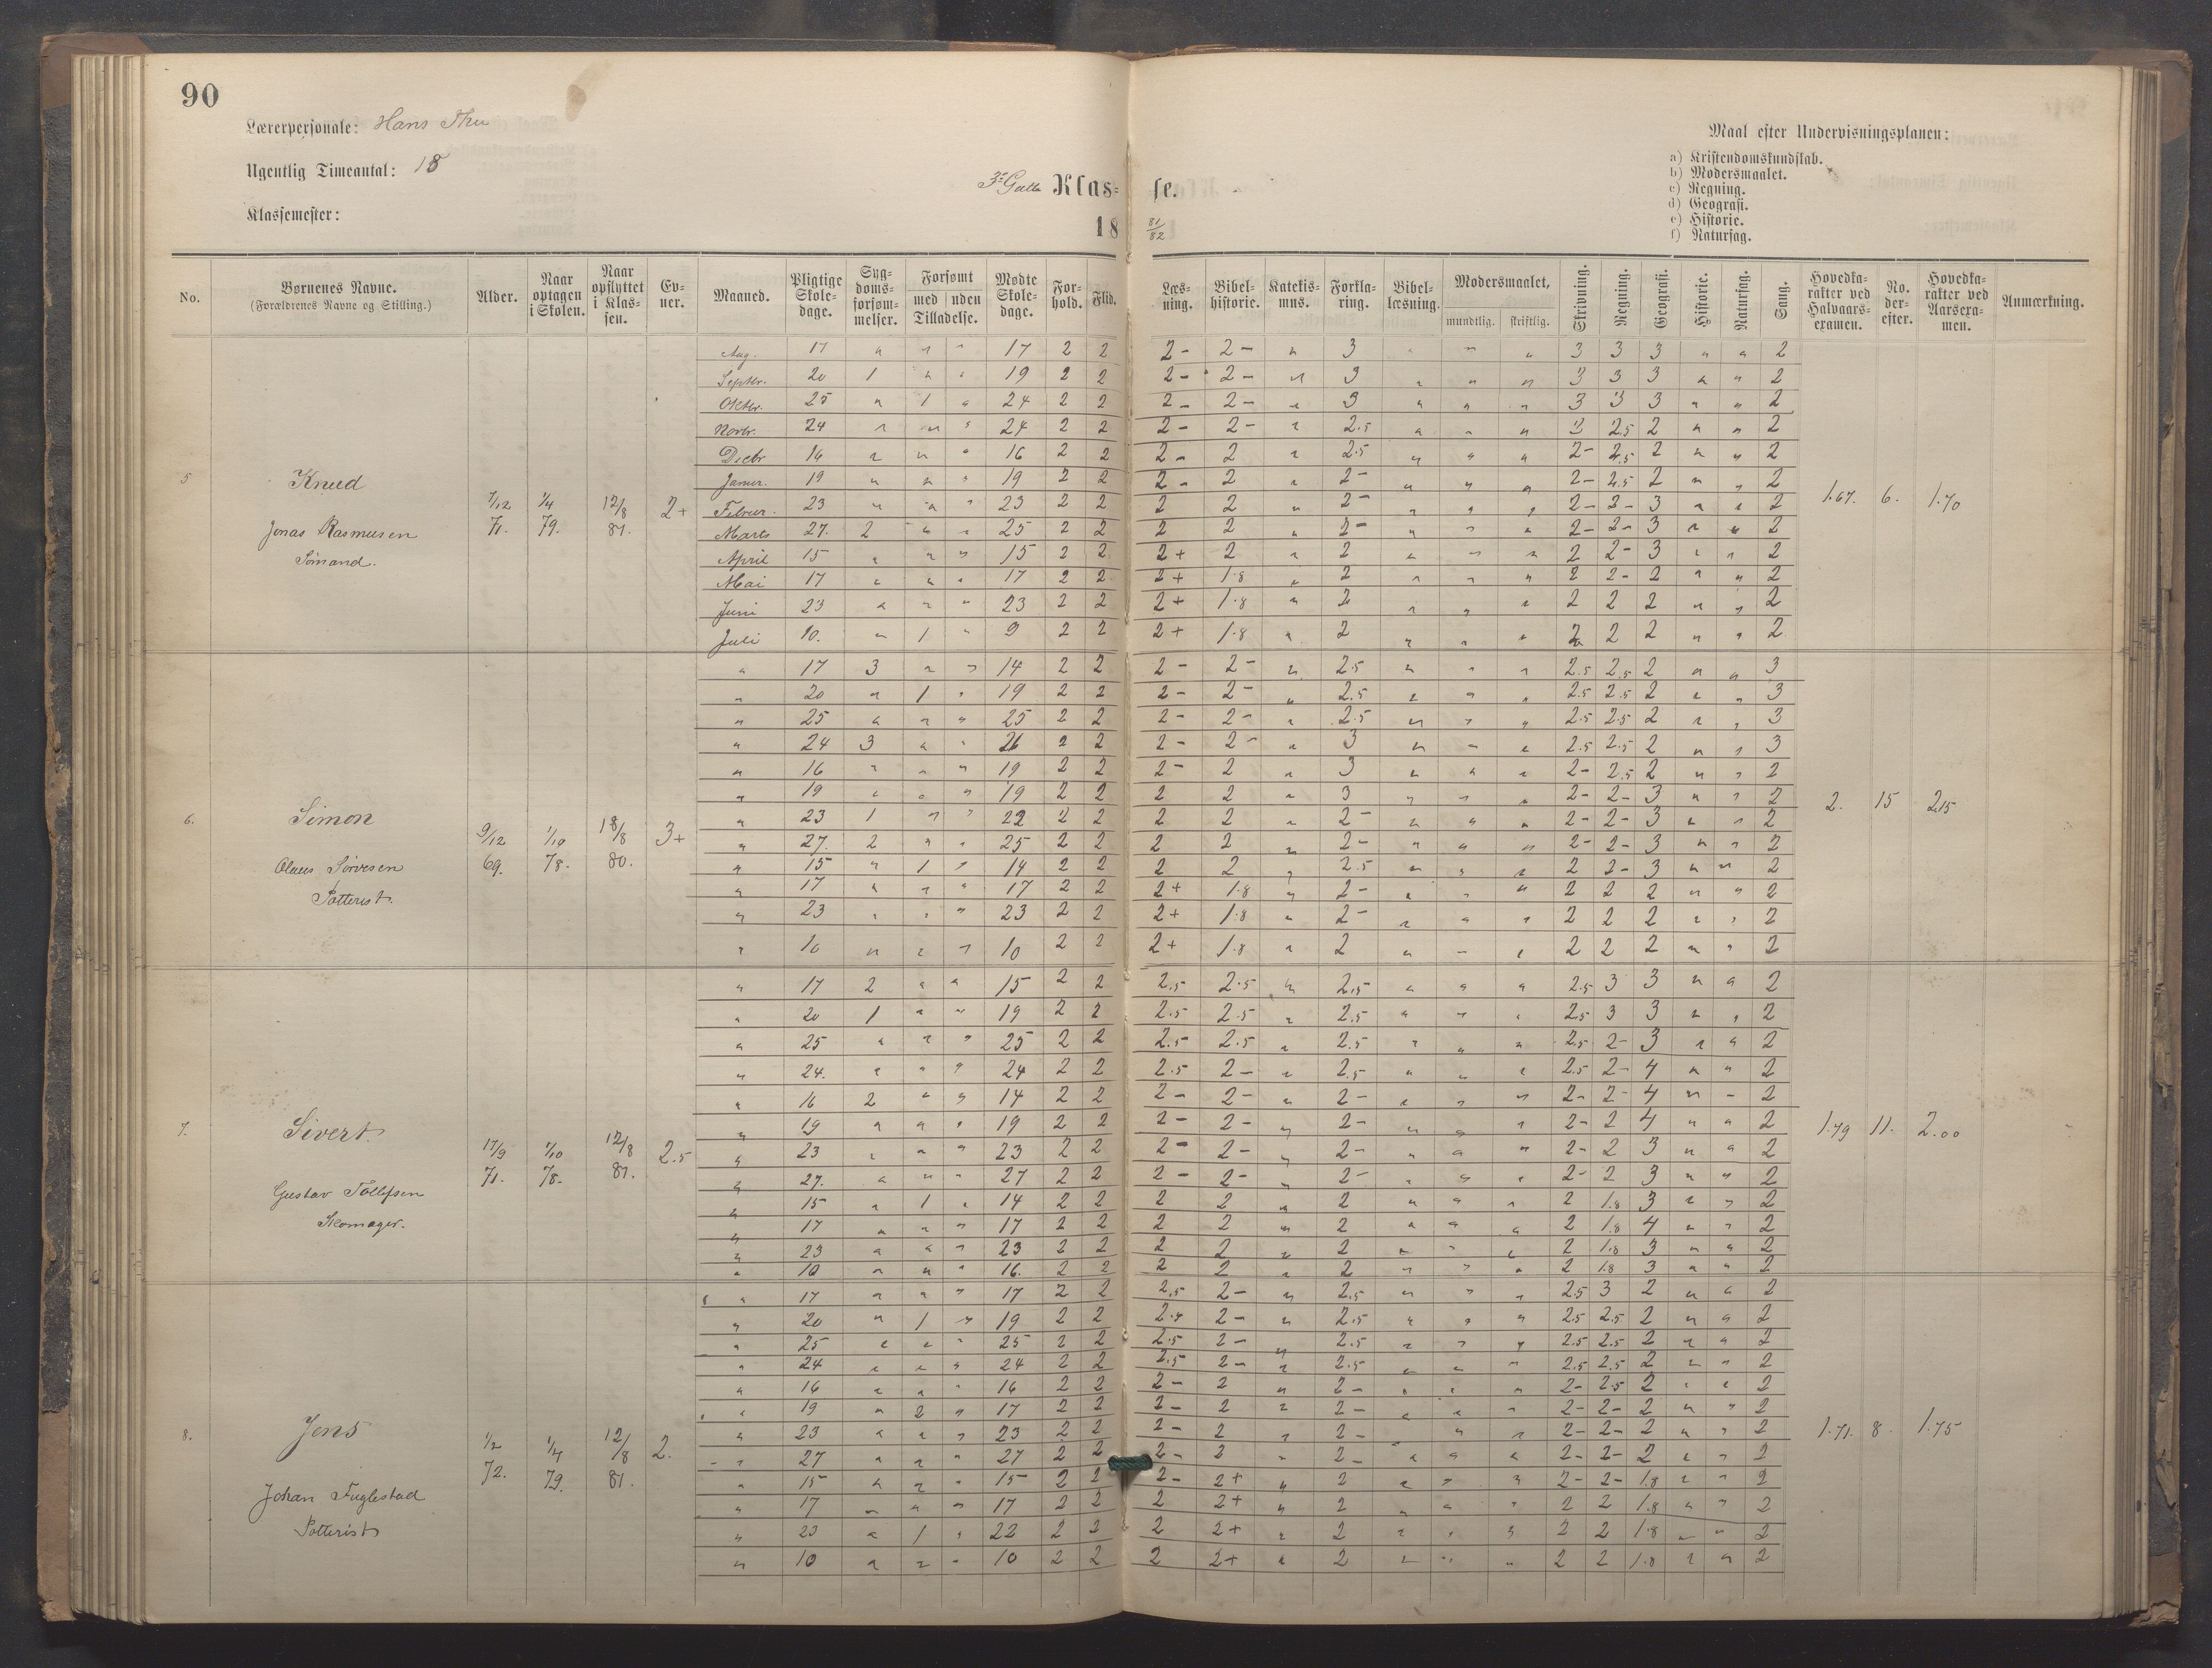 90
Lærerpersonale: Hans Thu
Ugentlig Timeantal: 18
Klassemester:
Klasse.
18 81/82
Maal efter Undervisningsplanen:
a) Kristendomskundskab.
b) Modersmaalet.
c) Regning.
d) Geografi.
e) Historie.
f) Naturfag.
No. Børnenes Navne. (Forældrenes Navne og Stilling.) Alder. Naar optagen i Skolen. Naar opflyttet i Klassen. Evner. Maaned. Pligtige Skoledage. Sygdomsforsømmelser. Forsømt med uden Tilladelse. Mødte Skoledage. Forhold. Flid. Læsning. Bibelhistorie. Katekismus. Forklaring. Bibellæsning. Modersmaalet, mundtlig. skriftlig. Skrivning. Regning. Geografi. Historie. Naturfag. Sang. Hovedkarakter ved Halvaarsexamen. No. derefter. Hovedkarakter ved Aarsexamen. Anmærkning.
Aug. 17 " " " 17 2 2 2- 2- " 3 " " " 3 3 3 " " 2
Septbr. 20 1 " " 19 2 2 2- 2- " 3 " " " 3 3 3 " " 2
Oktbr. 25 " 1 " 24 2 2 2- 2- " 3 " " " 3 3 3 " " 2
Novbr. 24 " " " 24 2 2 2- 2- " 2.5 " " " 3 2.5 2 " " 2
Decbr 16 " " " 16 2 2 2- 2 " 2.5 " " " 2- 2.5 2 " " 2
5 Knud
Januar. 19 " " " 19 2 2 2- 2 " 2- " " " 2- 2.5 2 " " 2
7/12 71. 1/4 79. 12/8 81. 2+
Februar. 23 " " " 23 2 2 2 2 " 2- " " " 2- 2- 3 " " 2
1.67. 6. 1.70
Jonas Rasmusen
Sømand.
Marts 27. 2 " " 25 2 2 2 2 " 2- " " " 2- 2- 3 " " 2
April 15 " " " 15 2 2 2+ 2 " 2 " " " 2 2- 3 " " 2
Mai 17 " " " 17 2 2 2+ 1.8 " 2 " " " 2 2- 2 " " 2
Juni 23 " " " 23 2 2 2+ 1.8 " 2 " " " 2 2 2 " " 2
Juli 10. " 1 " 9 2 2 2+ 1.8 " 2 " " " 2 2 2 " " 2
" 17 3 " " 14 2 2 2- 2- " 2.5 " " " 2.5 2.5 2 " " 3
" 20 " 1 " 19 2 2 2- 2- " 2.5 " " " 2.5 2.5 2 " " 3
" 25 " " " 25 2 2 2- 2- " 2.5 " " " 2.5 2.5 2 " " 3
" 24 3 " " 21 2 2 2- 2- " 3 " " " 2.5 2.5 2 " " 3
" 16 " " " 19 2 2 2- 2 " 3 " " " 2- 2.5 2 " " 2
" 19 " " " 19 2 2 2 2 " 3 " " " 2- 2- 3 " " 2
6. Simon
9/12 69. 1/10 78. 18/8 80. 3+
2. 15 2.15
Olaus Sørvesen
" 23 1 " " 22 2 2 2 2 " 2- " " " 2- 2- 3 " " 2
" 27. 2 " " 25 2 2 2 2 " 2- " " " 2- 2- 3 " " 2
" 15 " 1 " 14 2 2 2 2 " 2.5 " " " 2 2- 3 " " 2
" 17 " " " 17 2 2 2+ 1.8 " 2- " " " 2 2 2 " " 2
" 23 " " " 23 2 2 2+ 1.8 " 2- " " " 2 2 2 " " 2
" 10 " " " 10 2 2 2+ 1.8 " 2 " " " 2 2 2 " " 2
" 17 2 " " 15 2 2 2.5 2.5 " 2.5 " " " 2.5 3 3 " " 2
" 20 1 " " 19 2 2 2.5 2.5 " 2.5 " " " 2.5 3 3 " " 2
" 25 " " " 25 2 2 2.5 2.5 " 2.5 " " " 2.5 2- 3 " " 2
" 24. " " " 24 2 2 2.5 2- " 2.5 " " " 2.5 2- 4 " " 2
" 16 2 " " 14 2 2 2- 2- " 2- " " " 2- 2- 4 " " 2
" 19 " " " 19 2 2 2- 2- " 2- " " " 2- 2 4 " " 2
7. Sivert.
17/9 71. 1/10 78. 12/8 81. 2.5
1.79 11. 2.00
Gustav Tollefsen
Skomager.
" 23 " " " 23 2 2 2- 2- " 2- " " " 2- 2 3 " " 2
" 27. " " " 27 2 2 2- 2- " 2- " " " 2- 2 3 " " 2
" 15 " 1 " 14 2 2 2 2 " 2 " " " 2 1.8 3 " " 2
" 17 " " " 17 2 2 2 2 " 2 " " " 2 1.8 4 " " 2
" 23 " " " 23 2 2 2 2 " 2 " " " 2 1.8 3 " " 2
" 10 " " " 16. 2 2 2 2 " 2 " " " 2 1.8 3 " " 2
" 17 " " " 17 2 2 2.5 2- " 2.5 " " " 2.5 3 2 " " 2
" 20 " 1 " 19 2 2 2.5 2- " 2.5 " " " 2.5 2.5 2 " " 2
" 25 " " " 25 2 2 2.5 2- " 2.5 " " " 2.5 2.5 2 " " 2
" 24 " " " 24 2 2 2.5 2- " 2.5 " " " 2.5 2.5 2 " " 2
" 16 " " " 16 2 2 2- 2 " 2- " " " 2- 2.5 2 " " 2
" 19 " 2 " 17 2 2 2- 2 " 2- " " " 2- 2- 2 " " 2
8. Jens
1/2 72. 1/4 79. 12/8 81. 2.
1.71. 8. 1.75
Johan Fuglestad
" 23 " " " 23 2 2 2- 2 " 2- " " 2- 2- 2 " " 2
" 27 " " " 27 2 2 2- 2 " 2- " " " 2- 2- 2 " " 2
" 15 " " " 15 2 2 2- 2+ " 2 " " " 2- 2- 1.8 " " 2
" 17 " " " 17 2 2 2 2+ " 2 " " " 2 2 1.8 " " 2
" 23 " 1 " 22 2 2 2 2+ " 2 " " " 2 2 1.8 " " 2
" 10 " " " 10 2 2 2 2+ " 2 " " " 2 2 1.8 " " 2